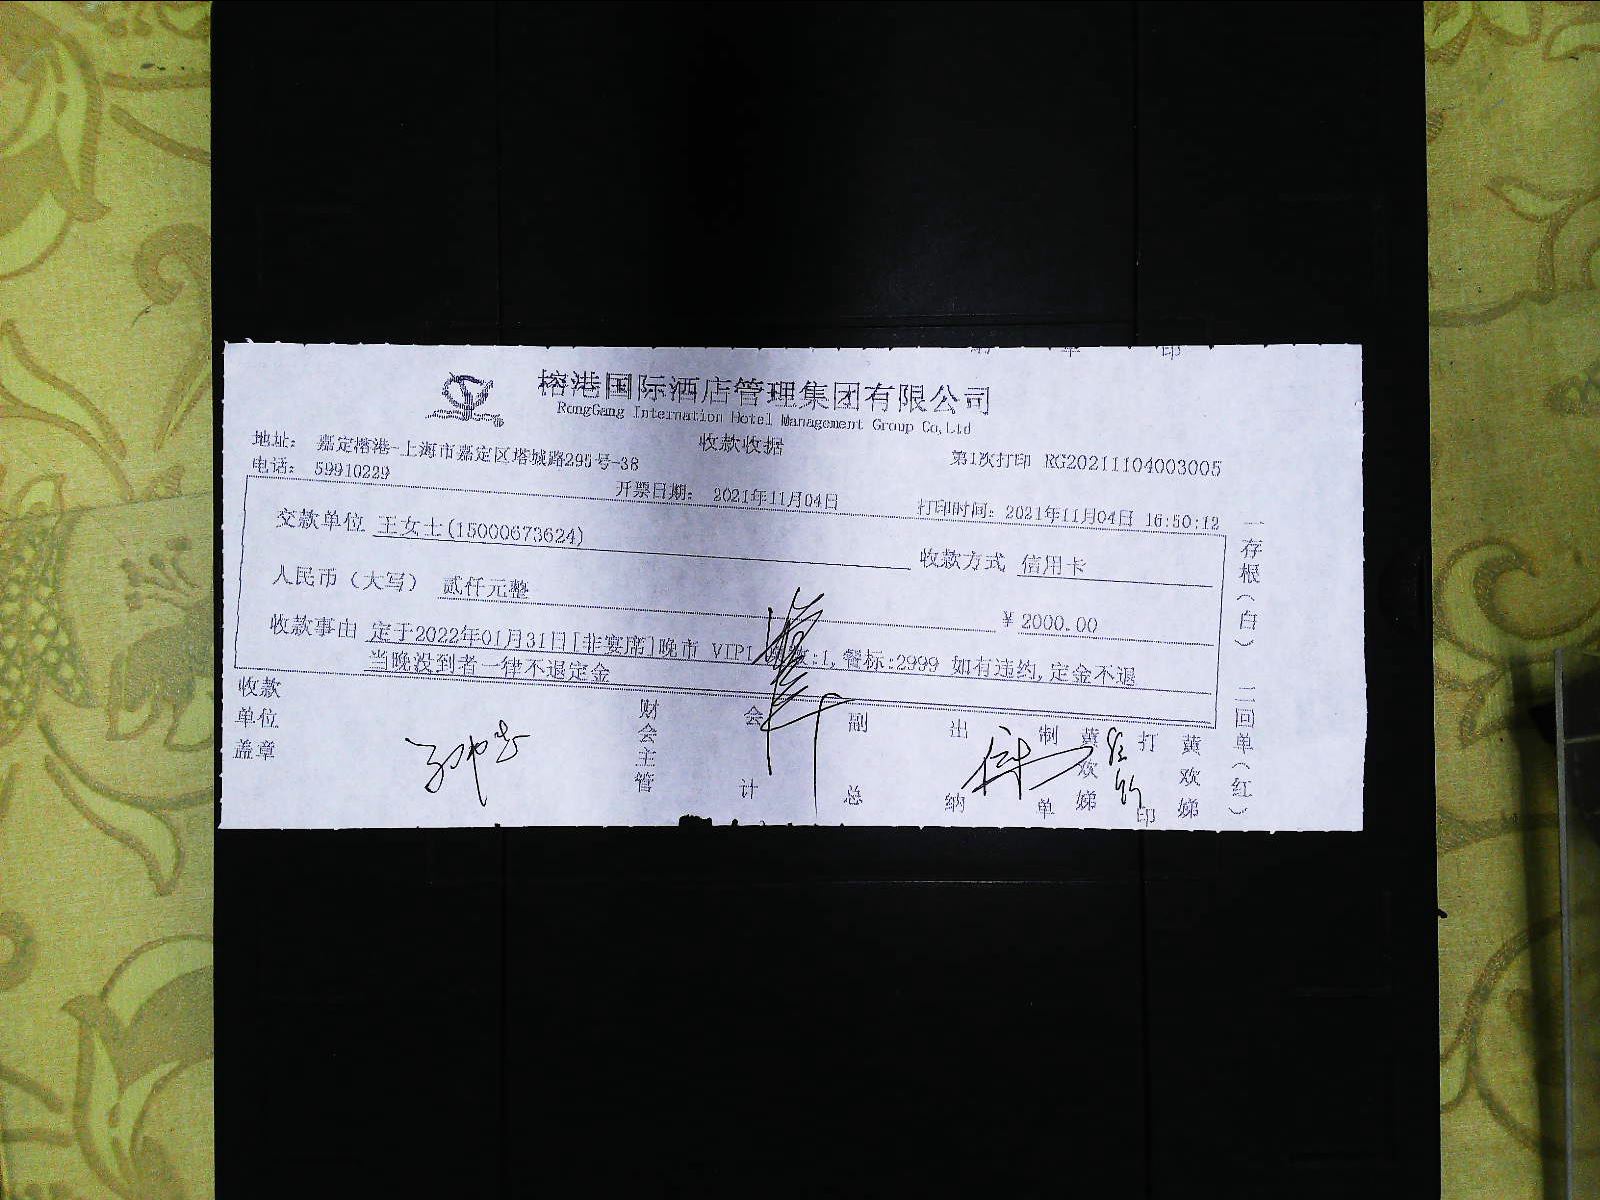 榕港国际酒店管理集团有限公司
RongGang Internation Hotel Management Group Co,Ltd
收款收据
地址： 嘉定榕港-上海市嘉定区塔城路295号-38
第1次打印 RG20211104003005
电话： 59910229
开票日期： 2021年11月04日
打印时间：2021年11月04日 16:50:12
交款单位 王女士(15000673624)
收款方式 信用卡
人民币（大写） 贰仟元整
￥2000.00
收款事由 定于2022年01月31日[非宴席]晚市 VIP1 :1,餐标:2999 如有违约,定金不退
当晚没到者一律不退定金
收款单位盖章
财会主管
会计
副总
出纳
制单 黄欢娣
打印 黄欢娣
一存根（白） 二回单（红）